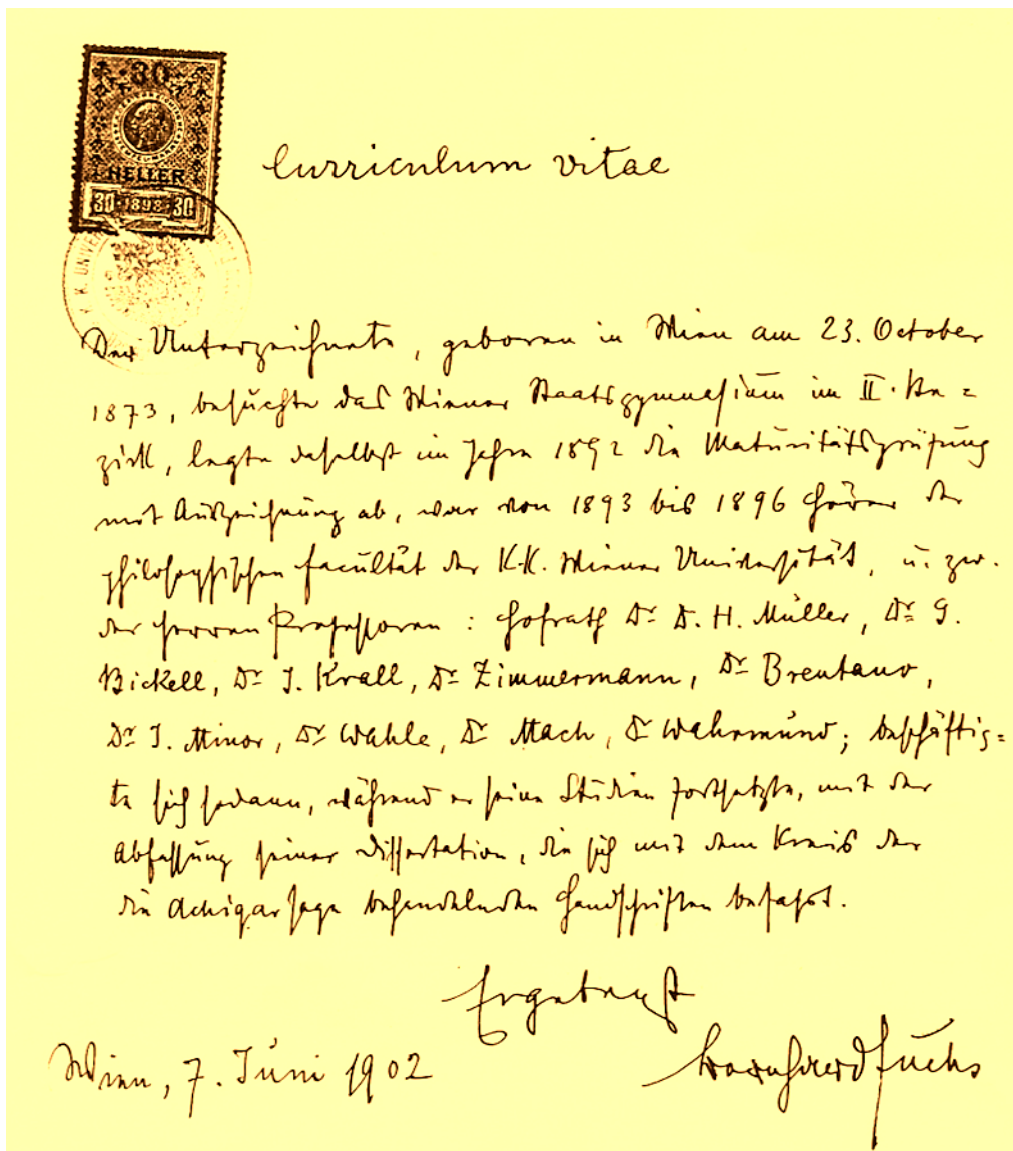 30
HELLER
30 1898 30
K. K. UNIVE
Curriculum vitae
Der Unterzeichnete, geboren in Wien am 23. October
1873, besuchte das Wiener Staatsgymnasium im II. Be=
zirk, legte daselbst im Jahre 1892 die Maturitätsprüfung
mit Auszeichnung ab, war von 1893 bis 1896 Hörer der
philosophischen Facultät der K.K. Wiener Universität, u. zw.
der Herren Professoren: Hofrath Dr D. H. Müller, Dr G.
Bickell, Dr J. Krall, Dr Zimmermann, Dr Brentano,
Dr J. Minor, Dr Wahle, Dr Mach, Dr Wahrmund; beschäftig=
te sich sodann, während er seine Studien fortsetzte, mit der
Abfassung seiner Dissertation, die sich mit dem Kreis der
die Achiqarsage behandelnden Handschriften befasst.
Ergebenst
Bernhard Fuchs
Wien, 7. Juni 1902